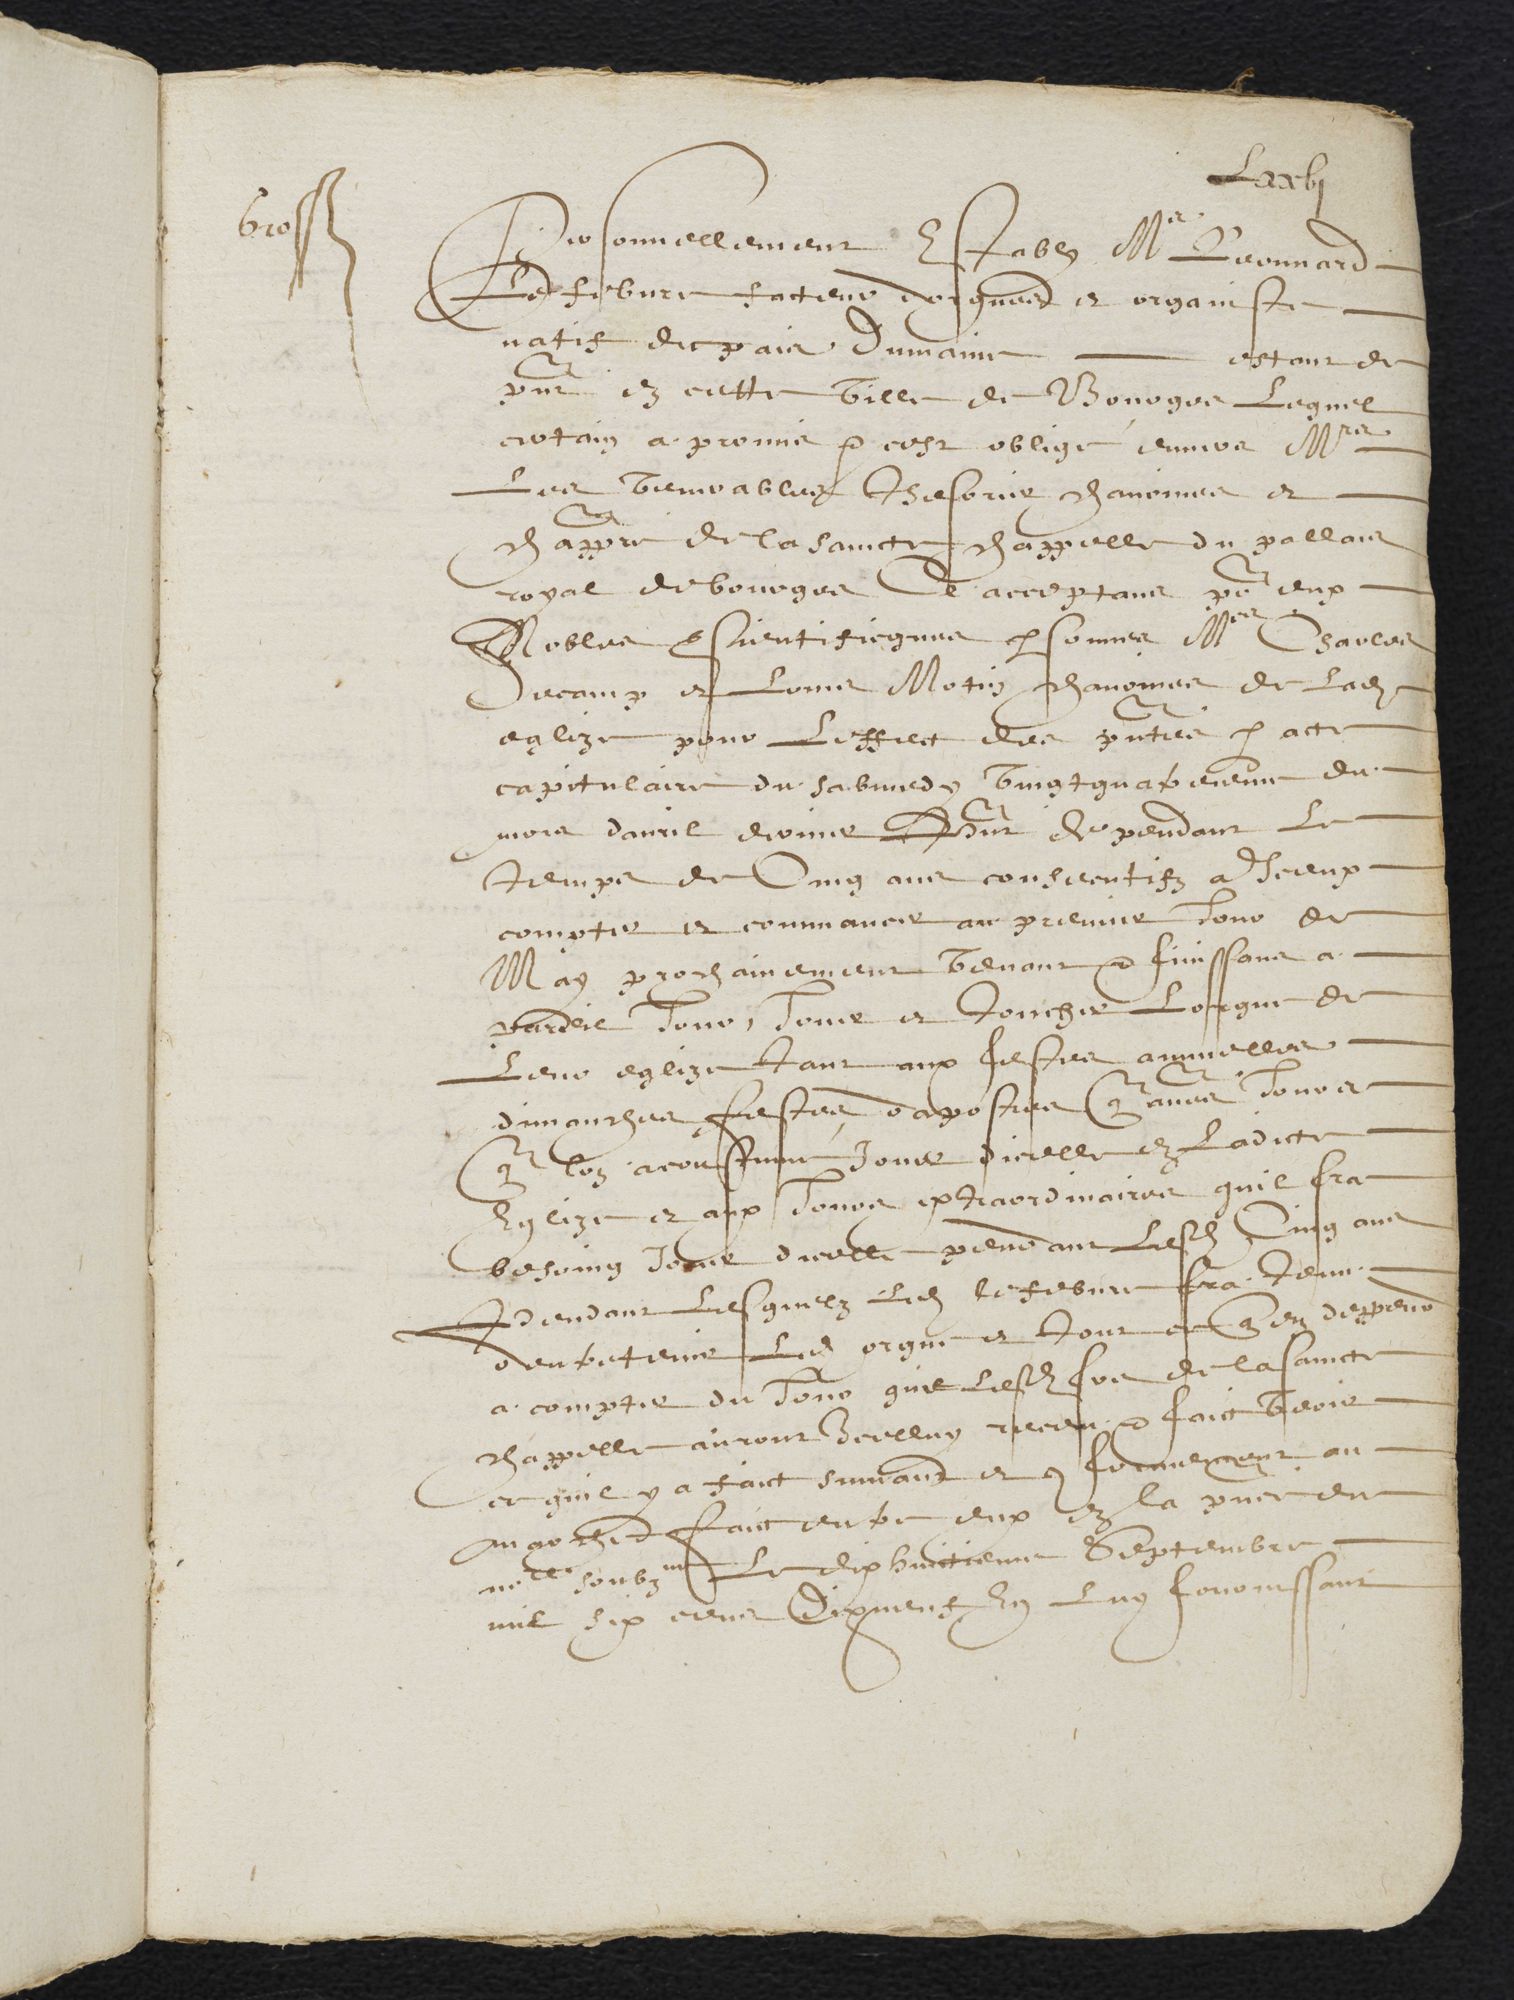 Lxxbj
Gross
Personnellement Estably Mr Leonnard
Lefebure facteur dorgues et organiste
natif de pais Dumaine estant de
pnt en cette Ville de Bourges Lequel
certain a promis & cest obligé enuers Mrs
Les Venerables thesorier chanoines et
chappre de la saincte chappelle du pallais
royal de bourges Ce acceptans pr eux
Nobles & sientificques psonnes Mes Charles
Decamp et Louis Motin chanoines de Lad
eglize pour Leffect des pntes p acte
capitulaire du sabmedy Vingtquatreiesme du
mois dauril dernier de pendant Le
temps de Cinq ans consecutifz a Iceux
compter et commancer au premier Iour de
May prochainement Venant & finissans a
pareil Iour, Iouer et toucher Lorgue de
Leur eglize tant aux festes annuelles
dimanches festes dapostres q aues Iours
q lon acoustumé Iouer dicelle en Ladicte
Eglize et aux Iours extraordinaires quil sra
besoing Iouer dicelle pendant Lesd Cinq ans
Pendant Lesquelz Led lefebure sra tenu
dentretenir Led orgue et tout ce q en deppend
a compter du Iour que Lesd srs de la saincte
chappelle auront Icelluy receu & faict Veoir
ce quil y a faict suiuant et au
marché faict entre eux en la pnce du
nore soubzne Le dixhuictiesme Septembre
mil six cens Dixneuf En Luy fournissant